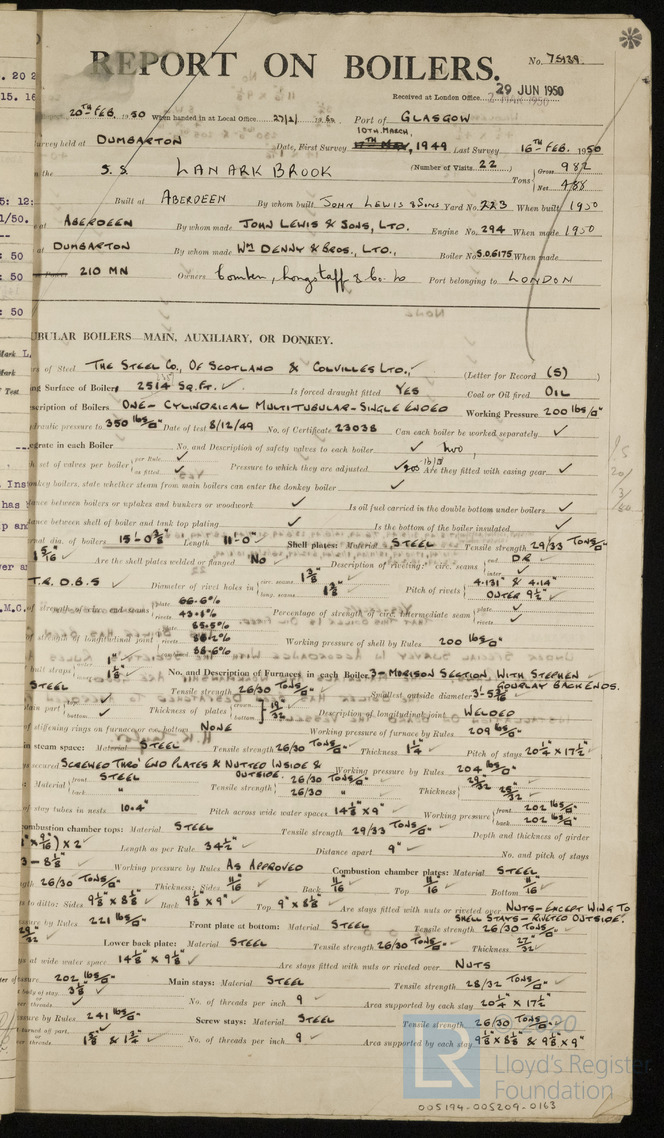 REPORT ON BOILERS.
No. 75139.
Received at London Office 29 JUN 1950
20TH FEB. 1950 When handed in at Local Office 27/2/ 1950 Port of GLASGOW
Survey held at DUMBARTON Date, First Survey 10TH MARCH, 1949 Last Survey 16TH FEB. 1950
(Number of Visits 22)
on the S.S. LANARKBROOK Tons Gross 982 Net 488
Built at ABERDEEN By whom built JOHN LEWIS & SONS Yard No. 223 When built 1950
at ABERDEEN By whom made JOHN LEWIS & SONS, LTD. Engine No. 294 When made 1950
at DUMBARTON By whom made WM DENNY & BROS., LTD., Boiler No. S.O.6175 When made
210 MN Owners Comben, Longstaff & Co. Ld Port belonging to LONDON
BULAR BOILERS MAIN, AUXILIARY, OR DONKEY.
of Steel THE STEEL CO., OF SCOTLAND & COLVILLES LTD., (Letter for Record (S) )
ng Surface of Boilers 2514 SQ.FT. Is forced draught fitted YES Coal or Oil fired OIL
scription of Boilers ONE - CYLINDRICAL MULTITUBULAR - SINGLE ENDED Working Pressure 200 lbs/□"
draulic pressure to 350 lbs/□" Date of test 8/12/49 No. of Certificate 23038 Can each boiler be worked separately ✓
grate in each Boiler No. and Description of safety valves to each boiler two
set of valves per boiler per Rule as fitted Pressure to which they are adjusted 205 lb/□" Are they fitted with easing gear ✓
nkey boilers, state whether steam from main boilers can enter the donkey boiler ✓
ance between boilers or uptakes and bunkers or woodwork ✓ Is oil fuel carried in the double bottom under boilers ✓
ance between shell of boiler and tank top plating ✓ Is the bottom of the boiler insulated ✓
nal dia. of boilers 15'-0 3/8" Length 11'-0" Shell plates: Material STEEL Tensile strength 29/33 TONS/□"
1 5/16" Are the shell plates welded or flanged NO Description of riveting: circ. seams end D.R. inter. ✓
T.R. D.B.S ✓ Diameter of rivet holes in circ. seams 1 3/8" long. seams 1 3/8" Pitch of rivets 4.131" & 4.14" OUTER 9 1/2"
of strength of circ. end seams plate 66.6% rivets 43.1% Percentage of strength of circ. intermediate seam plate ✓ rivets ✓
of strength of longitudinal joint plate 85.5% rivets 88.2% combined 88.6% Working pressure of shell by Rules 200 lbs/□"
butt straps 1" 1 1/8" No. and Description of Furnaces in each Boiler 3 - MORISON SECTION, WITH STEPHEN GOURLAY BACK ENDS.
STEEL Tensile strength 26/30 TONS/□" Smallest outside diameter 3'-5 3/16"
plain part bottom Thickness of plates crown bottom 19/32" Description of longitudinal joint WELDED
of stiffening rings on furnace or c.c. bottom NONE Working pressure of furnace by Rules 209 lbs/□"
in steam space: Material STEEL Tensile strength 26/30 TONS/□" Thickness 1 1/4" Pitch of stays 20 1/4" x 17 1/2"
ys secured SCREWED THRO' END PLATES & NUTTED INSIDE & OUTSIDE. Working pressure by Rules 204 lbs/□"
: Material front STEEL back " Tensile strength 26/30 TONS/□" 26/30 " Thickness 29/32" 25/32"
of stay tubes in nests 10.4" Pitch across wide water spaces 14 1/8" x 9" Working pressure front 202 lbs/□" back 202 lbs/□"
ombustion chamber tops: Material STEEL Tensile strength 29/33 TONS/□" Depth and thickness of girder
x 9/16) x 2" Length as per Rule 34 1/2" Distance apart 9" No. and pitch of stays
3 - 8 1/8" Working pressure by Rules AS APPROVED Combustion chamber plates: Material STEEL
gth 26/30 TONS/□" Thickness: Sides 11/16" Back 11/16" Top 11/16" Bottom 11/16"
s to ditto: Sides 9 1/8" x 8 1/8" Back 9 1/8" x 9" Top 9" x 8 1/8" Are stays fitted with nuts or riveted over NUTS - EXCEPT WING TO SHELL STAYS - RIVETED OUTSIDE.
ssure by Rules 221 lbs/□" Front plate at bottom: Material STEEL Tensile strength 26/30 TONS/□"
29/32" Lower back plate: Material STEEL Tensile strength 26/30 TONS/□" Thickness 27/32"
s at wide water space 14 1/8" x 9 1/8" Are stays fitted with nuts or riveted over NUTS
ssure 202 lbs/□" Main stays: Material STEEL Tensile strength 28/32 TONS/□"
body of stay 3 1/8" or over threads No. of threads per inch 9 Area supported by each stay 20 1/4" x 17 1/2"
ssure by Rules 241 lbs/□" Screw stays: Material STEEL Tensile strength 26/30 TONS/□"
turned off part or over threads 1 5/8" & 1 3/4" No. of threads per inch 9 Area supported by each stay 9 1/8" x 8 1/8" & 9 1/8" x 9"
© 2020
LR
Lloyd's Register
Foundation
005194-005209-0163